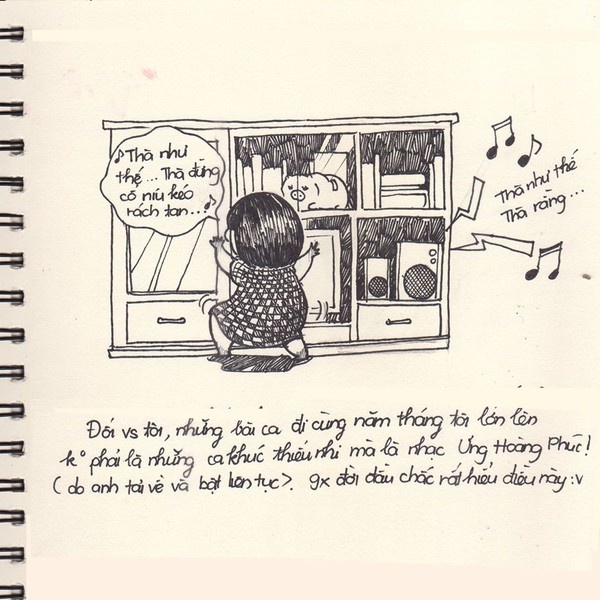 Thà như
thế... Thà đừng
cố níu kéo
rách tan...
Thà như thế
Thà rằng...
Đối vs tôi, những bài ca đi cùng năm tháng tôi lớn lên
k° phải là những ca khúc thiếu nhi mà là nhạc Ưng Hoàng Phúc!
(do anh tải về và bật liên tục). 9x đời đầu chắc rất hiểu điều này :v